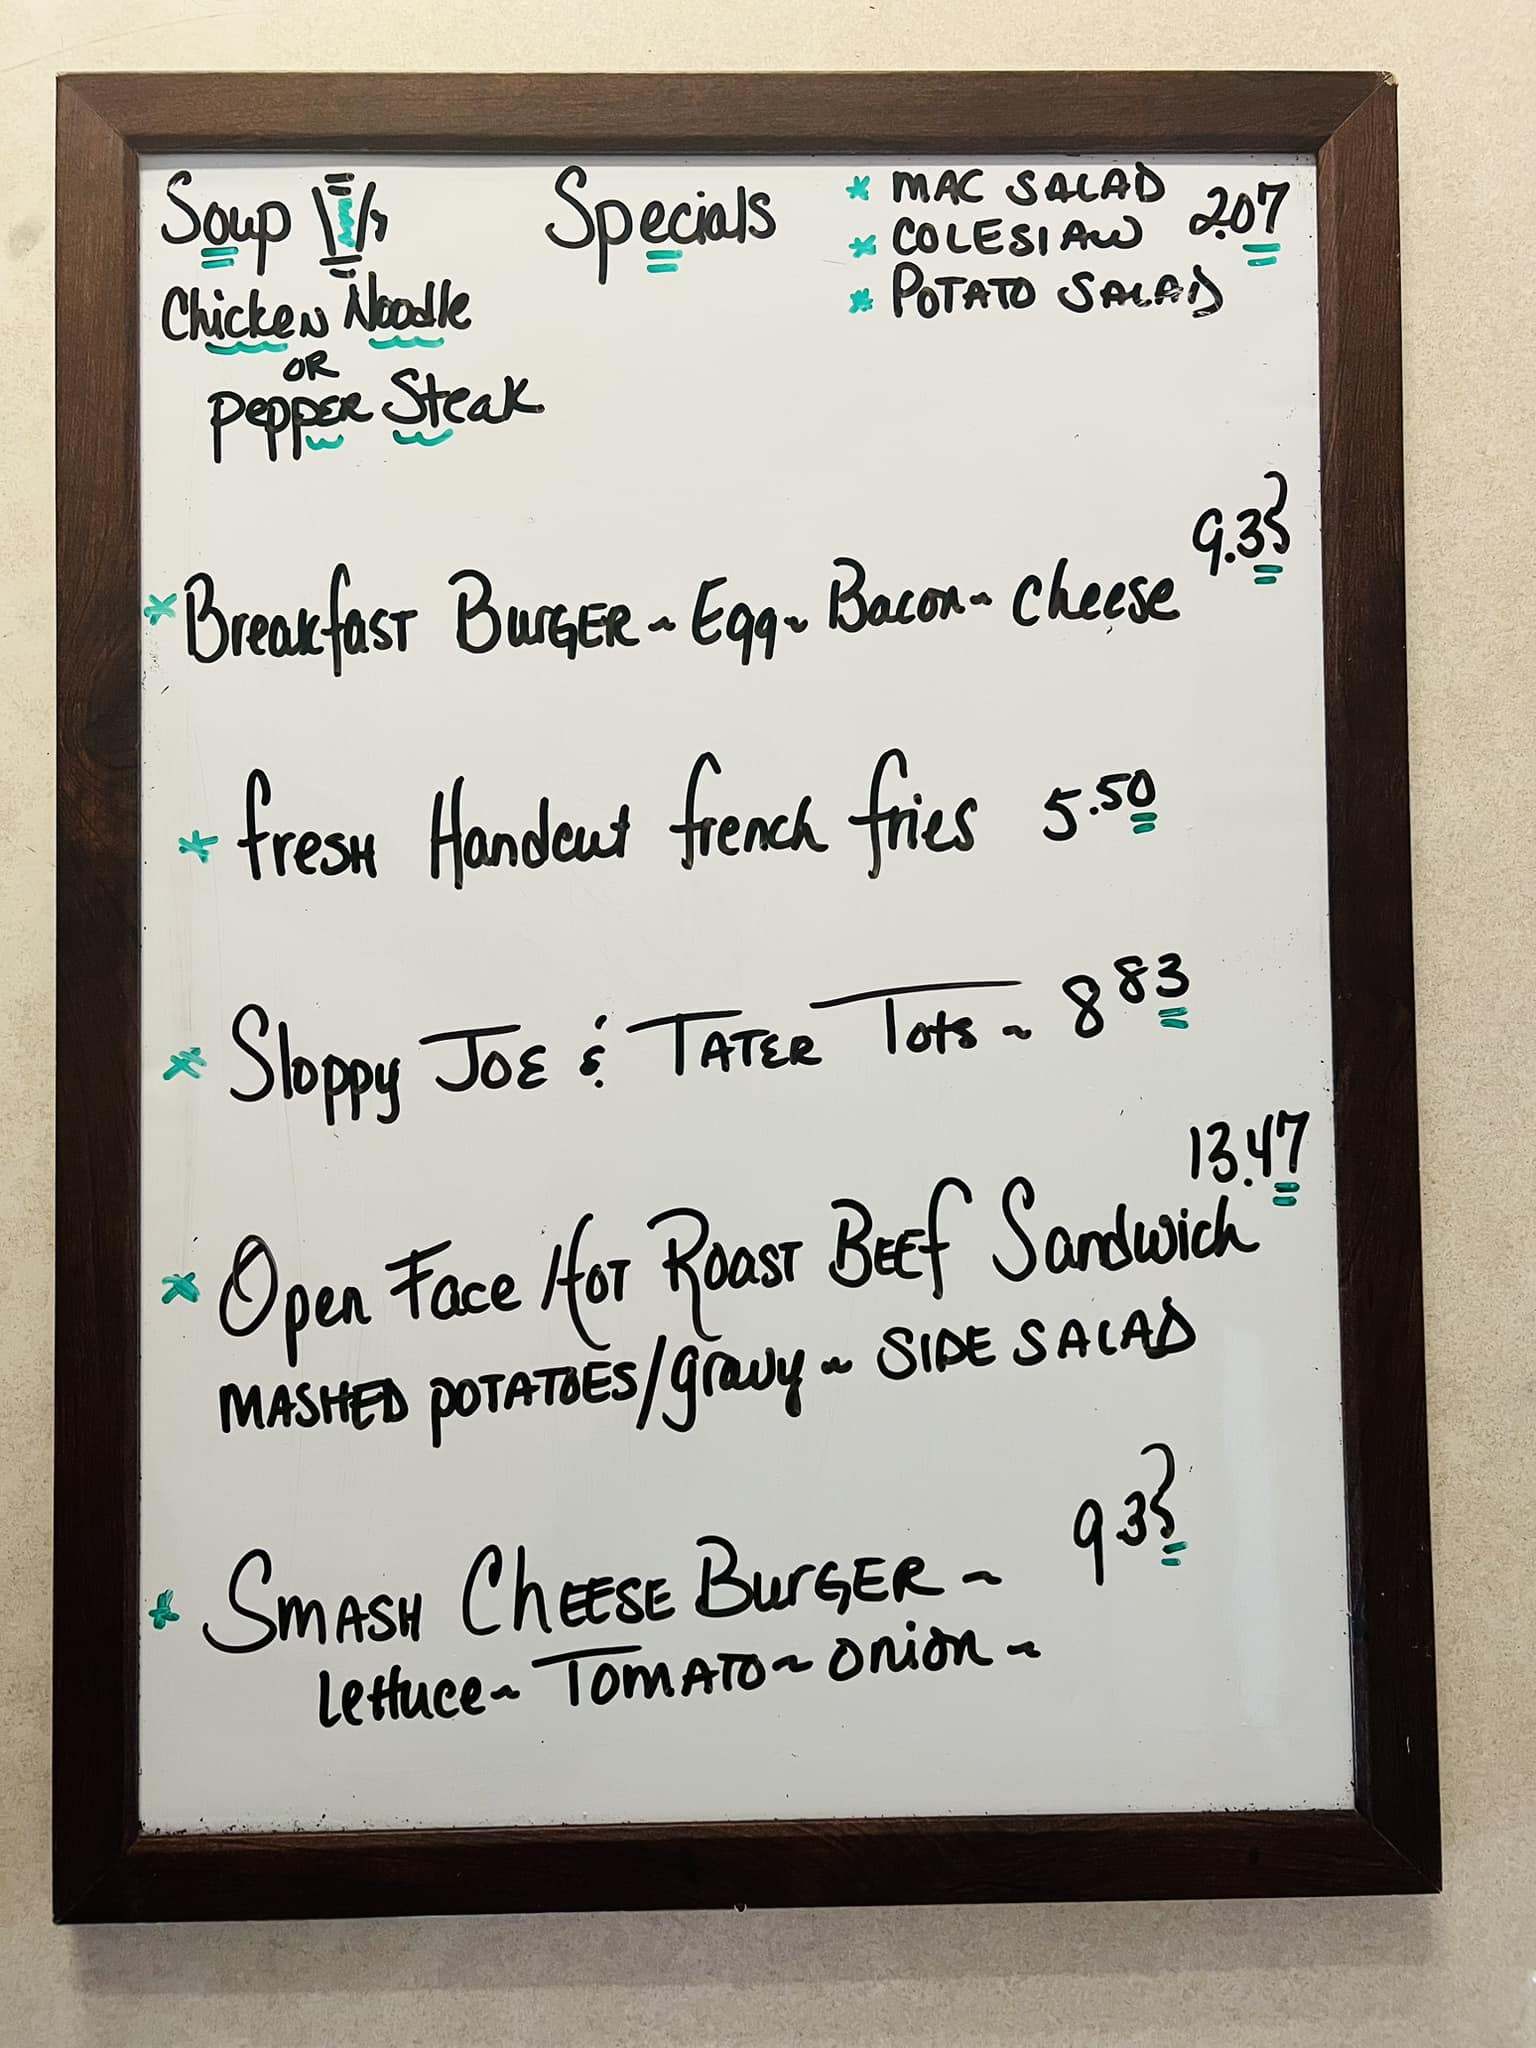 Soup
Chicken Noodle
OR
Pepper Steak
Specials
* MAC SALAD
* COLESLAW 2.07
* POTATO SALAD
9.33
* Breakfast BURGER ~ Egg ~ Bacon ~ Cheese
* fresh Handcut french fries 5.50
* Sloppy JOE & TATER Tots ~ 8 83
13.47
* Open Face Hot Roast BEEf Sandwich
MASHED POTATOES/gravy ~ SIDE SALAD
9.33
* SMASH CHEESE BURGER ~
Lettuce ~ TOMATO ~ onion ~